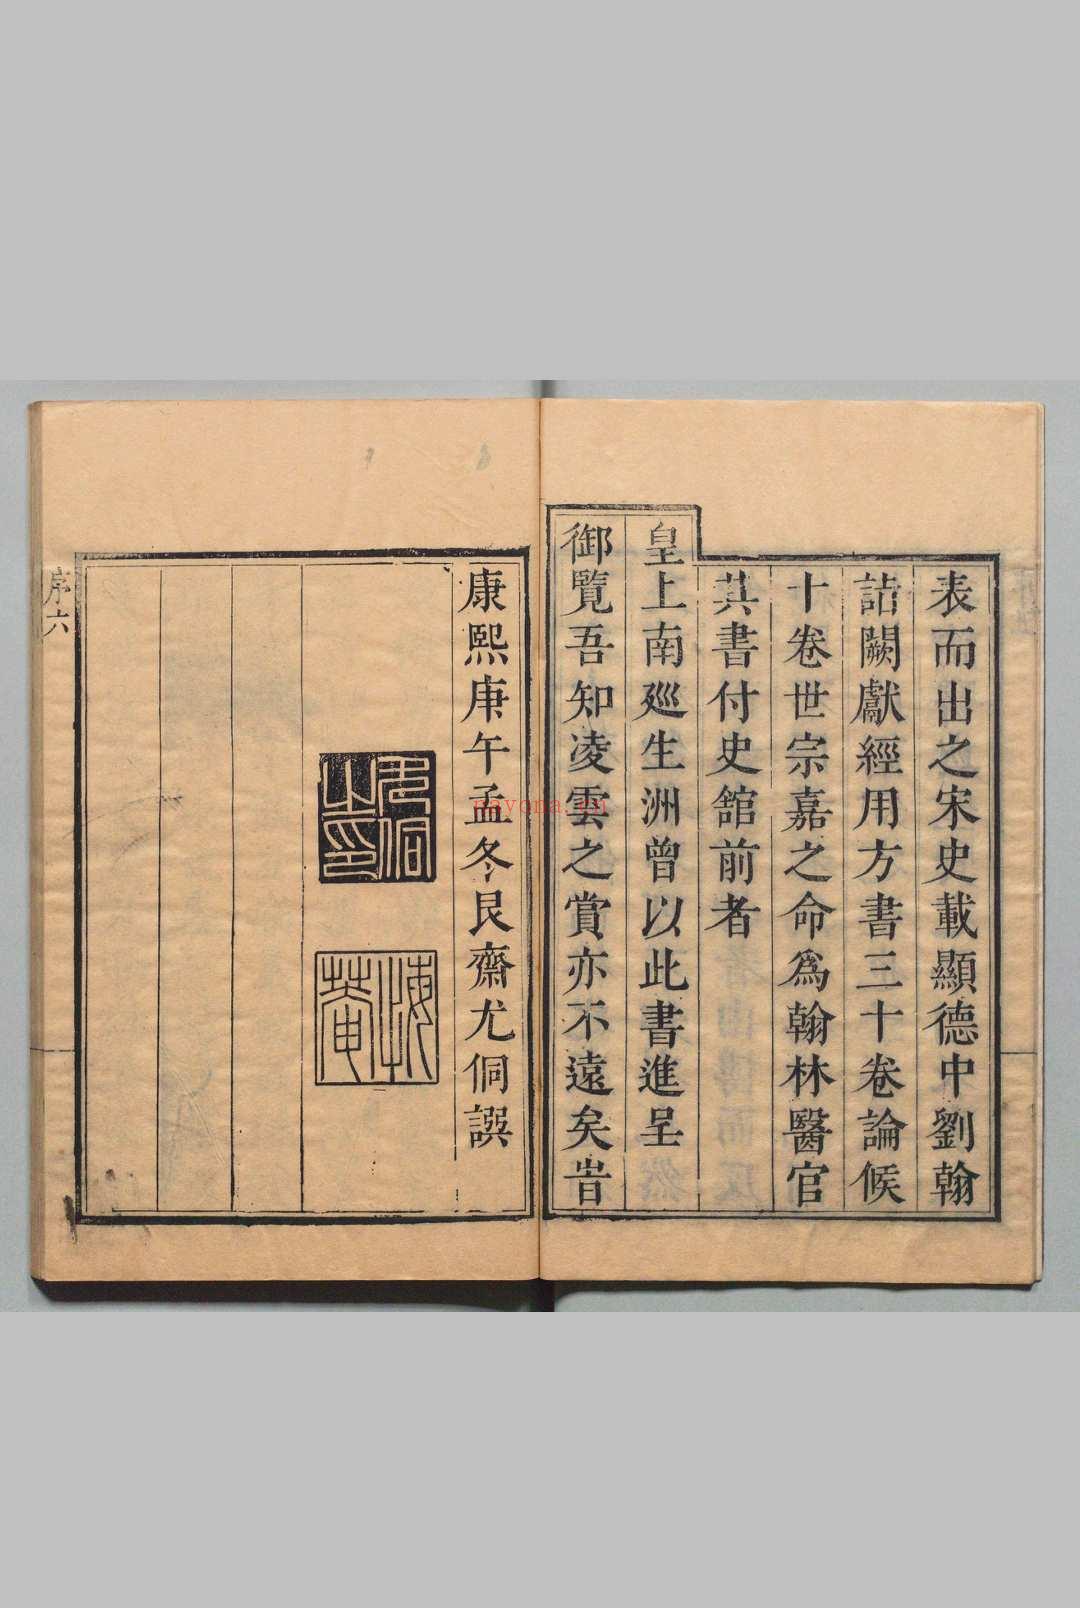 表而出之宋史載顯德中劉翰
詰闕獻經用方書三十卷論候
十卷世宗嘉之命為翰林醫官
其書付史館前者
皇上南廵生洲曾以此書進呈
御覽吾知凌雲之賞亦不遠矣旹
康熙庚午孟冬艮齋尤侗譔
尤侗之印
悔菴
序六
nayona.cn